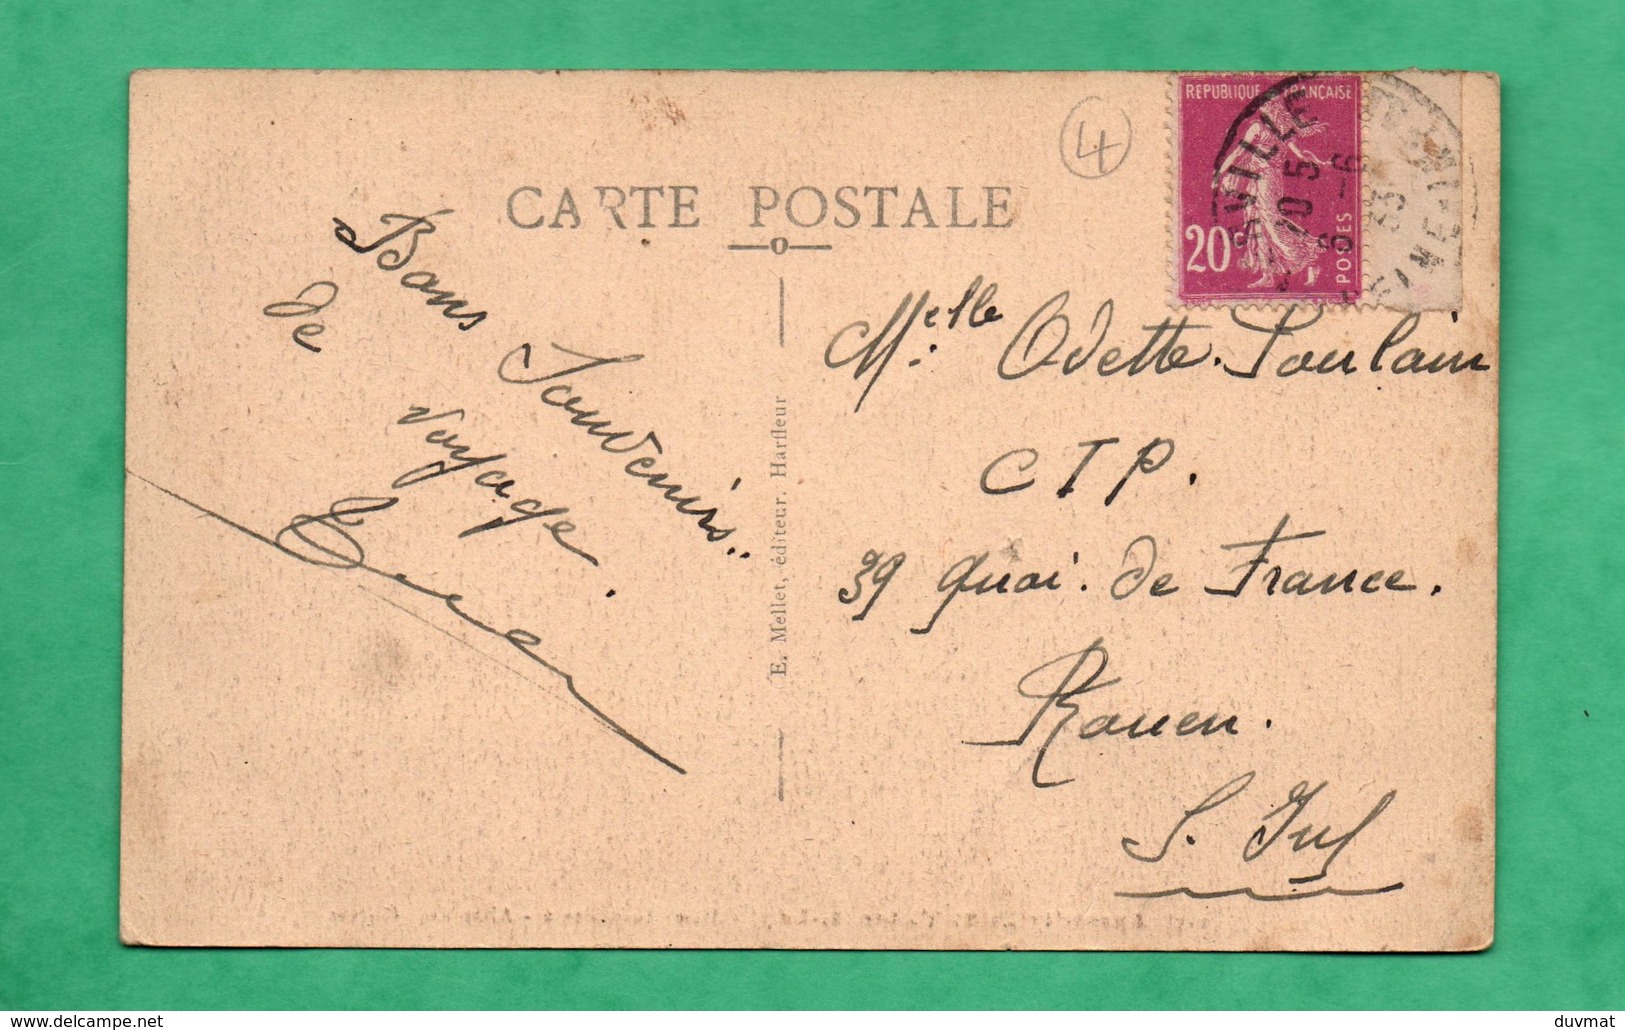 CARTE POSTALE
4
REPUBLIQUE FRANÇAISE
20c
POSTES
10 5
6 - 6
33
Bons Souvenirs..
de voyage.
E. Mellet, éditeur. Harfleur
Melle Odette Poulain
CIP.
39 quai de France.
Rouen.
S. Inf
delcampe.net
duvmat